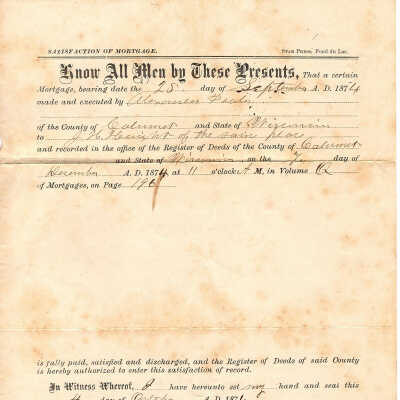 SATISFACTION OF MORTGAGE. Star Print, Fond du Lac.
Know All Men by These Presents, That a certain
Mortgage, bearing date the 28 day of September A. D. 1874
made and executed by
of the County of Calumet and State of Wisconsin
to of the same place
and recorded in the office of the Register of Deeds of the County of Calumet
and State of Wisconsin, on the day of
December A. D. 1874, at 11 o'clock A M, in Volume
of Mortgages, on Page
is fully paid, satisfied and discharged, and the Register of Deeds of said County
is hereby authorized to enter this satisfaction of record.
In Witness Whereof, I have hereunto set my hand and seal this
day of October A. D. 187